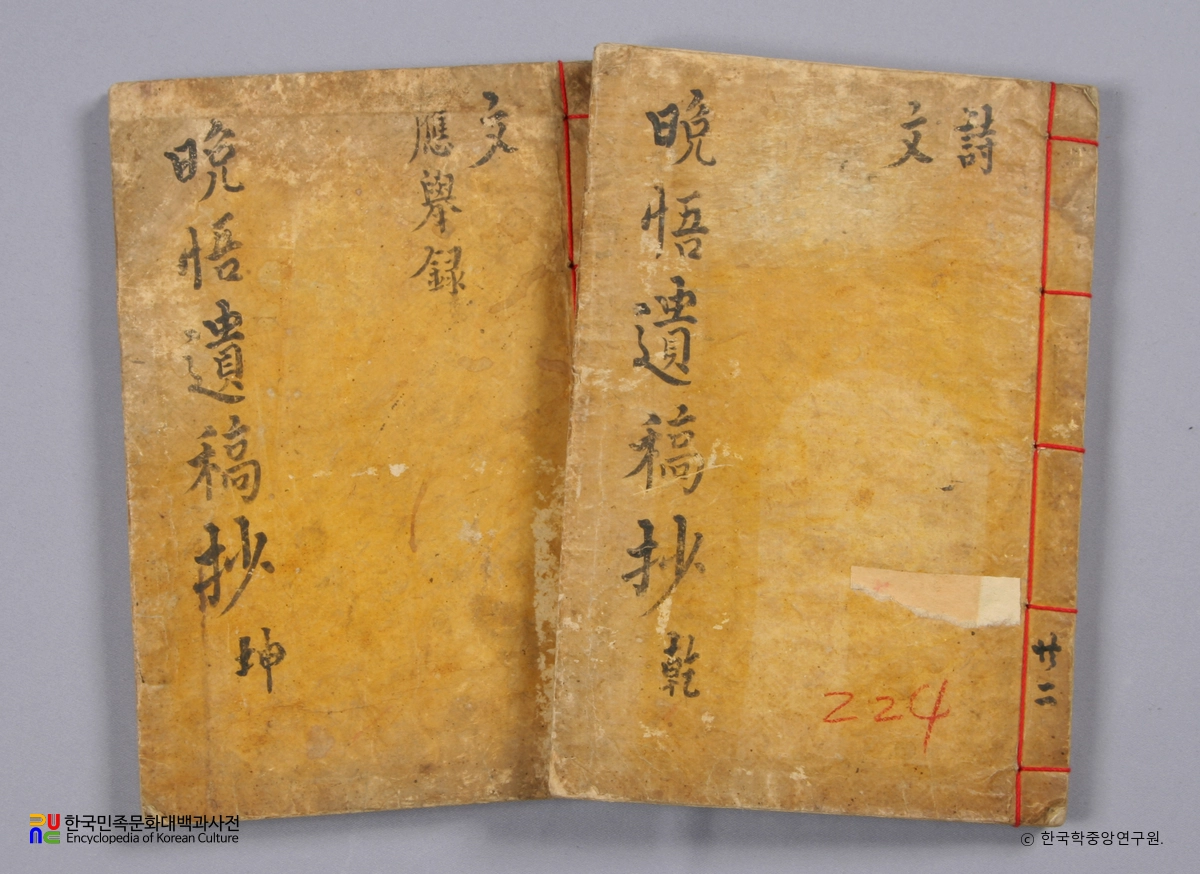 詩
文
晩悟遺稿抄 乾
廿二
224
文
應擧録
晩悟遺稿抄 坤
한국민족문화대백과사전
Encyclopedia of Korean Culture
ⓒ 한국학중앙연구원.